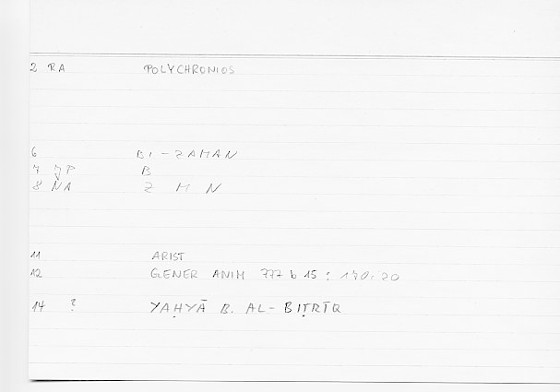 2 RA POLYCHRONIOS
6 BI-ZAMAN
7 JP B
8 NA Z M N
11 ARIST
12 GENER ANIM 777 b 15 : 170, 20
14 ? YAḤYĀ B. AL-BIṬRĪQ